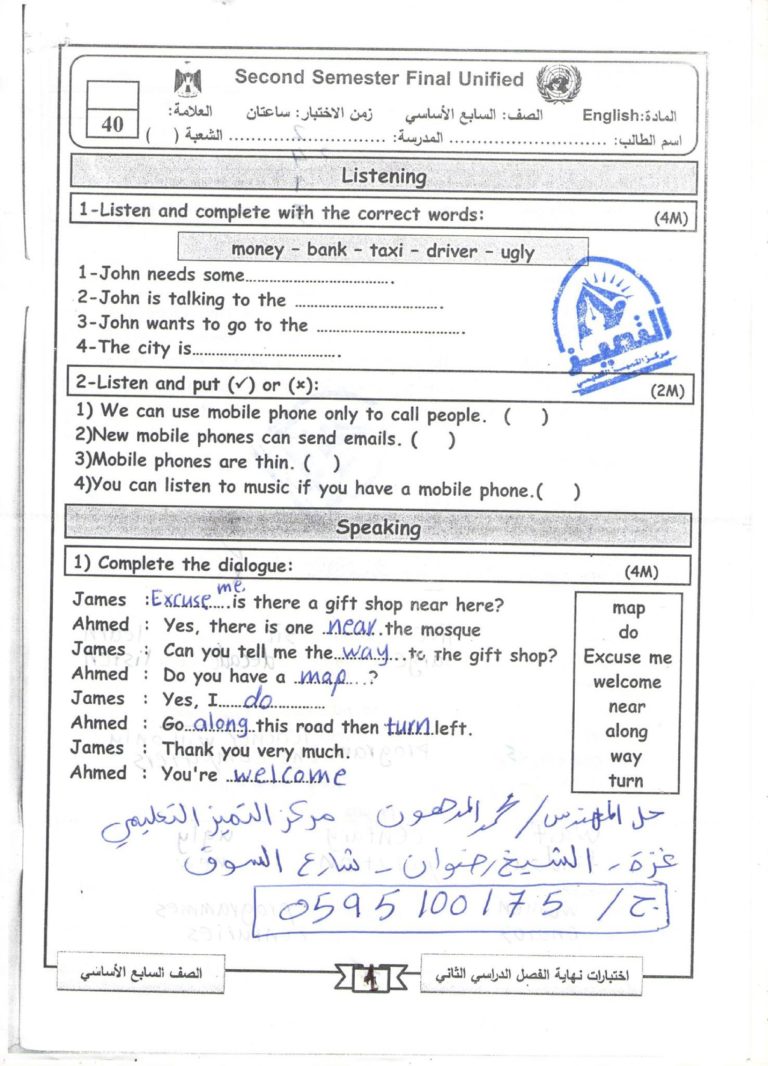 Second Semester Final Unified
المادة:English الصف: السابع الأساسي زمن الاختبار: ساعتان العلامة:
40
اسم الطالب: ........................... المدرسة: ........................... الشعبة ( )
Listening
1-Listen and complete with the correct words: (4M)
money – bank – taxi – driver – ugly
1-John needs some................................
2-John is talking to the ................................
3-John wants to go to the ................................
4-The city is................................
التميز
مركز التميز التعليمي
2-Listen and put (✓) or (×): (2M)
1) We can use mobile phone only to call people. ( )
2)New mobile phones can send emails. ( )
3)Mobile phones are thin. ( )
4)You can listen to music if you have a mobile phone.( )
Speaking
1) Complete the dialogue: (4M)
James :Excuse me. is there a gift shop near here?
Ahmed : Yes, there is one near the mosque
James : Can you tell me the way to the gift shop?
Ahmed : Do you have a map ?
James : Yes, I do
Ahmed : Go along this road then turn left.
James : Thank you very much.
Ahmed : You're welcome
map
do
Excuse me
welcome
near
along
way
turn
حل المهندس/ محمد المدهون مركز التميز التعليمي
غزة - الشيخ رضوان - شارع السوق
ج/ 0595100175
اختبارات نهاية الفصل الدراسي الثاني
1
الصف السابع الأساسي